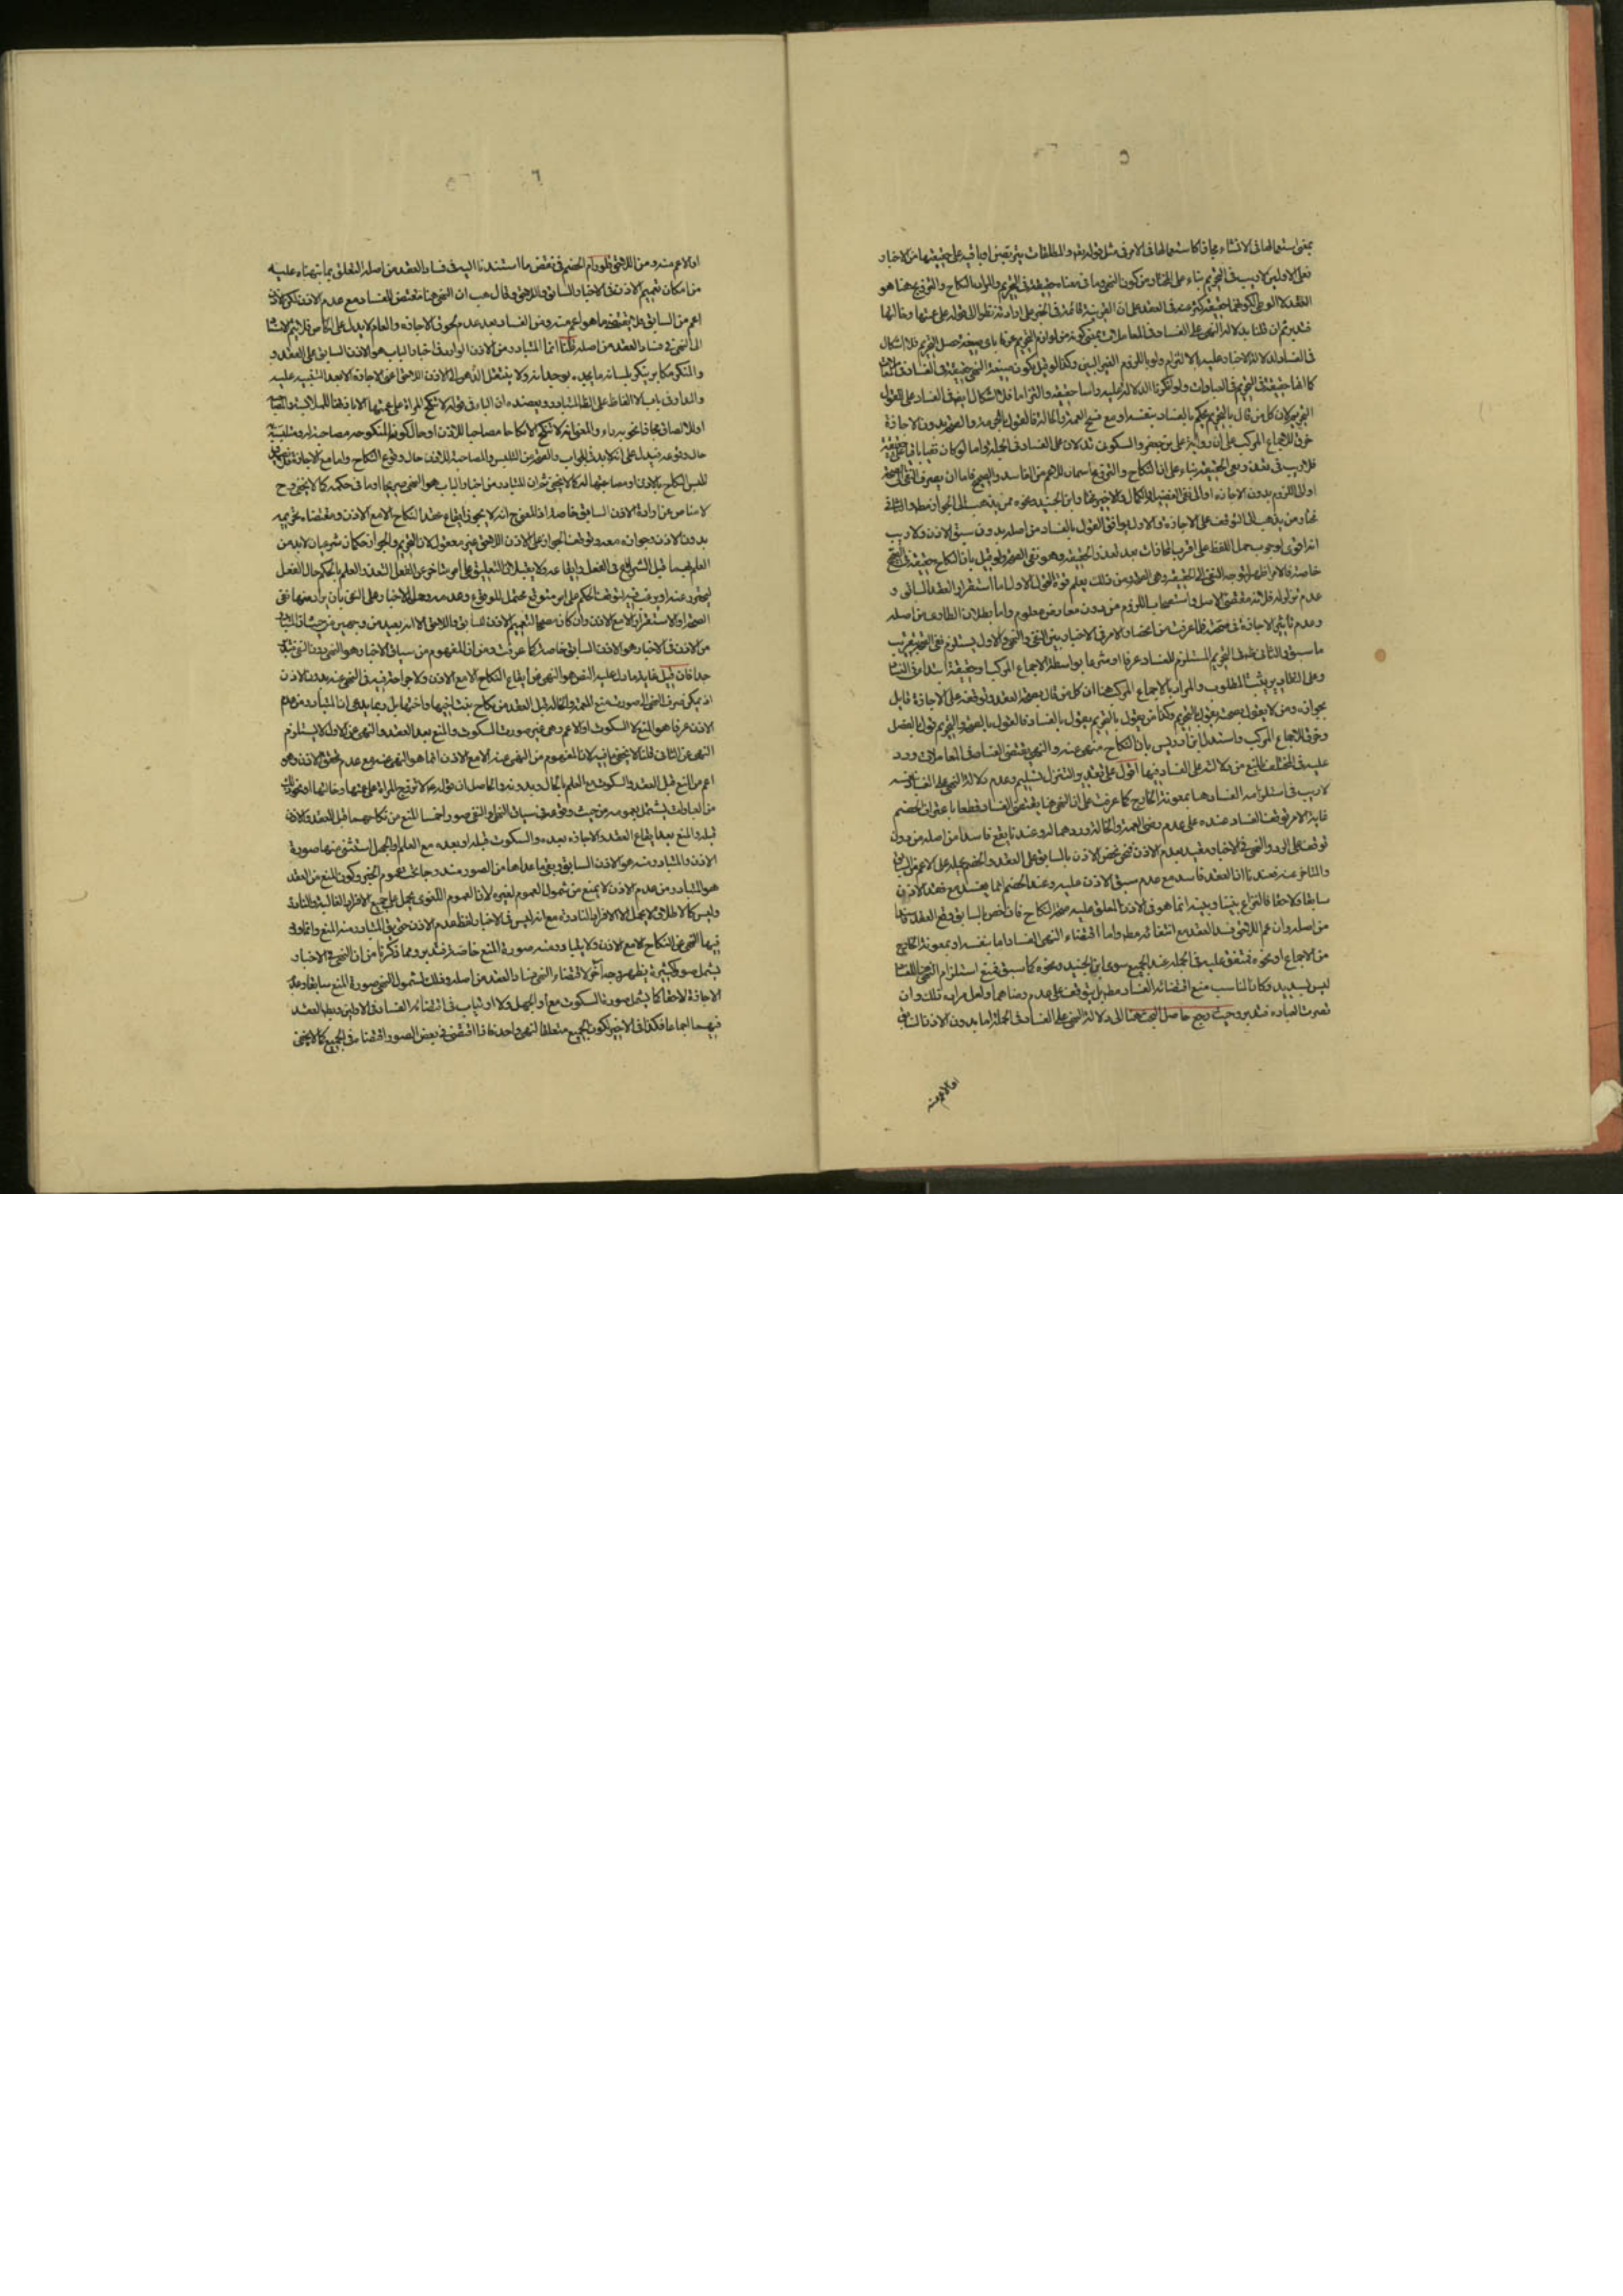 ٥
بمعنى استعمالها في الانشاء مجازا كاستعمالها في الامر في مثل قوله تعالى والمطلقات يتربصن او باقية على حقيقتها من الاخبار
فعلى الاولين لا ريب في التحريم بناء على المختار من كون النهي وما في معناه حقيقة في التحريم والمراد بالنكاح والتزويج هنا هو
العقد لا الوطي لكونهما حقيقة شرعية في العقد على ان القرينة قائمة في الخبر على ارادته نظرا الى قوله على عمتها وخالتها
فتدبر ثم ان قلنا بدلالة النهي على الفساد في المعاملات بمعنى كونه من لوازم التحريم عرفا باي صيغة حصل التحريم فلا اشكال
في الفساد لدلالة الاخبار عليه بالالتزام ولو باللزوم الغير البين وكذا لو قيل بكون صيغة النهي حقيقة في الفساد في المعاملات
كما انها حقيقة في التحريم في العبادات ولو انكرنا الدلالة عليه راسا حقيقة والتزاما فلا اشكال ايضا في الفساد على القول
بالتحريم لان كل من قال بالتحريم حكم بالفساد بنفسه او مع فسخ العمة والخالة فالقول بالتحريم والصحة بدون الاجازة
خرق للاجماع المركب على ان رواية علي بن جعفر والسكوني تدلان على الفساد في الجملة واما لو كان نفيا باقيا على حقيقته
فلا ريب في تعذر نفي الحقيقة بناء على ان النكاح والتزويج اسمان للاعم من الفاسد والصحيح فاما ان يصرف النفي الى الصحة
او الى اللزوم بدون الاجازة او الى نفي الفضيلة والكمال والاخير مختار ابن الجنيد ونحوه ممن يذهب الى الجواز مطلقا والثاني
مختار من يذهب الى التوقف على الاجازة والاول يوافق القول بالفساد من اصله بدون سبق الاذن ولا ريب
انه اقوى لوجوب حمل اللفظ على اقرب المجازات بعد تعذر الحقيقة وهو نفي الصحة ولو قيل بان النكاح حقيقة في الصحيح
خاصة فالامر اظهر لتوجه النفي الى الحقيقة وهي الصحة ومن ذلك يعلم قوة القول الاول اما استقرار العقد السابق و
عدم تزلزله فلانه مقتضى الاصل واستصحاب اللزوم من دون معارض معلوم واما بطلان الطاري من اصله
وعدم تاثير الاجازة في صحته فلما عرفت من انحصار الامر في الاخبار بين النفي والنهي والاول يستلزم نفي الصحة بتقريب
ما سبق والثاني التحريم المستلزم للفساد عرفا او شرعا بواسطة الاجماع المركب او حقيقة ابتداء في الفساد
وعلى التقادير يثبت المطلوب والمراد بالاجماع المركب هنا ان كل من قال بصحة العقد وتوقفه على الاجازة قايل
بجوازه ومن لا يقول بصحته يقول بالتحريم وكذا من يقول بالتحريم يقول بالفساد فالقول بالصحة والتحريم قول بالفصل
وخرق للاجماع المركب واستدل ابن ادريس بان النكاح منهي عنه والنهي يقتضي الفساد في المعاملات ورد
عليه في المختلف بالمنع من دلالته على الفساد فيها اقول على تقدير التنزل وتسليم عدم دلالة النهي على الفساد بنفسه
لا ريب في استلزامه الفساد هنا بمعونة الخارج كما عرفت على ان النهي هنا يقتضي الفساد قطعا باعتراف الخصم
غاية الامر توقف الفساد عنده على عدم رضى العمة والخالة وردهما له وعندنا يقع فاسدا من اصله من دون
توقف على الرد والنهي في الاخبار مقيد بعدم الاذن فنحن نخص الاذن بالسابق على العقد والخصم يحمله على الاعم من السابق
والمتاخر عنه فعندنا ان العقد فاسد مع عدم سبق الاذن عليه وعند الخصم انما يفسد مع فقد الاذن
سابقا ولاحقا فالنزاع بيننا وبينه انما هو في الاذن المعلق عليه صحة النكاح فان خص بالسابق وقع العقد فاسدا
من اصله وان عم اللاحق فسد العقد مع انتفائه مطلقا واما اقتضاء النهي الفساد اما بنفسه او بمعونة الخارج
من الاجماع او نحوه فمتفق عليه في الجملة عند الجميع سوى ابن الجنيد ونحوه كما سبق فمنع استلزام النهي للفساد
ليس بسديد وكان المناسب منع اقتضائه الفساد مطلقا بل يتوقف على عدم رضاهما ولعل مراده ذلك وان
قصرت العبارة فتدبر وحيث رجع حاصل البحث هنا الى دلالة النهي على الفساد في الجملة اما بدون الاذن السابق
او الاعم منه
٦
او الاعم منه ومن اللاحق فلو رام الخصم في نقض ما استندنا اليه في فساد العقد من اصله التعلق بما نبهنا عليه
من امكان تعميم الاذن في الاخبار للسابق واللاحق وقال هب ان النهي هنا مقتض للفساد مع عدم الاذن لكن الاذن
اعم من السابق فلا يقتضي ما هو اعم منه ومن الفساد بعد عدم لحوق الاجازة والعام لا يدل على الخاص فلا يتم الاستناد
الى النهي في فساد العقد من اصله قلنا انما المتبادر من الاذن الوارد في اخبار الباب هو الاذن السابق على العقد و
والمنكر مكابر ينكر بلسانه ما يجده بوجدانه ولا ينتقل الذهن الى الاذن اللاحق اعني الاجازة الا بعد التنبيه عليه
والمعارف باب الالفاظ على الظاهر المتبادر ويعضده ان الباء في قوله لا تنكح المراة على عمتها الا باذنها للملابسة والمصاحبة
او للالصاق مجازا نحو به داء والمعنى انه لا تنكح الا نكاحا مصاحبا للاذن او حال كون المنكوحة مصاحبة له ومتلبسة
حال وقوعه فيدل على انه لا بد في الجواز والصحة من التلبس والمصاحبة للاذن حال وقوع النكاح واما مع الاجازة فلا يحصل
تلبس النكاح بالاذن او مصاحبتها له كما لا يخفى ثم ان المتبادر من اخبار الباب هو النهي صريحا او ما في حكمه كما لا يخفى وح
لا مناص عن ارادة الاذن السابق خاصة اذ المعنى ح انه لا يجوز ايقاع عقد النكاح الا مع الاذن ومقتضاه تحريمه
بدون الاذن وجوازه معه وتوقف الجواز على الاذن اللاحق غير معقول لان التحريم والجواز حكمان شرعيان لا بد من
العلم بهما قبل الشروع في الفعل وايقاعه ولا يقبلان التعليق على امر متاخر عن الفعل لتعذر العلم بالحكم حال الفعل
ليحترز عنه او يرغب فيه لتوقف الحكم على امر متوقع محتمل للوقوع وعدمه وحمل الاخبار على النفي بان يراد منها نفي
الصحة او الاستقرار الا مع الاذن وان كان مصححا لتعميم الاذن للسابق واللاحق الا انه بعيد من وجهين من حيث ان المتبادر
من الاذن في الاخبار هو الاذن السابق خاصة كما عرفت ومن ان المفهوم من سياق الاخبار هو النهي دون النفي فتدبر
جدا فان قيل غاية ما دل عليه النص هو النهي عن ايقاع النكاح الا مع الاذن ولا جواز فيه في النهي عنه بدون الاذن
اذ يمكن صرف النهي الى صورة منع العمة والخالة قبل العقد من نكاح بنت اخيها واختها بل ربما يدعى ان المتبادر من عدم
الاذن عرفا هو المنع لا السكوت او الاعم وهي غير صورة السكوت والمنع بعد العقد والنهي عن الاول لا يستلزم
النهي عن الثاني قلنا لا يخفى ما فيه لان المفهوم من النهي عنه الا مع الاذن انما هو النهي عنه مع عدم تحقق الاذن وهو
اعم من المنع قبل العقد والسكوت مع العلم بالحال وبدونه والحاصل ان قوله ع لا تزوج المراة على عمتها وخالتها او نحو ذلك
من العبارات يشتمل بعمومه من حيث وقوعه في سياق النهي او النفي صور احدها المنع من نكاحهما قبل العقد والاذن
قبله والمنع بعد ايقاع العقد والاجازة بعده والسكوت قبله او بعده مع العلم والجهل استثني منها صورة
الاذن والمتبادر منه هو الاذن السابق وبقي ما عداها من الصور مندرجا تحت عموم الخبر وكون المنع من العقد
هو المتبادر من عدم الاذن لا يمنع من شمول العموم لغيره لان العموم اللغوي يحمل على جميع الافراد الغالبة والنادرة
وليس كالاطلاق لا يحمل الا على الافراد المتبادرة مع انه ليس في الاخبار لفظ عدم الاذن حتى يق المتبادر منه المنع وانما ورد
فيها النهي عن النكاح الا مع الاذن ولا يتبادر منه صورة المنع خاصة فتدبر ومما ذكرنا من ان النهي في الاخبار
يشمل صورا كثيرة يظهر وجه آخر لاقتضاء النهي فساد العقد من اصله وذلك لشمول النهي صورة المنع سابقا وعدم
الاجازة لاحقا كما يشمل صورة السكوت مع او الجهل ولا ارتياب في اقتضائه الفساد في الاولين وبطل العقد
فيهما اجماعا فكذا في الاخير لكون الجميع متعلقا لنهي واحد فاذا اقتضى في بعض الصور اقتضاه في الجميع كما لا يخفى